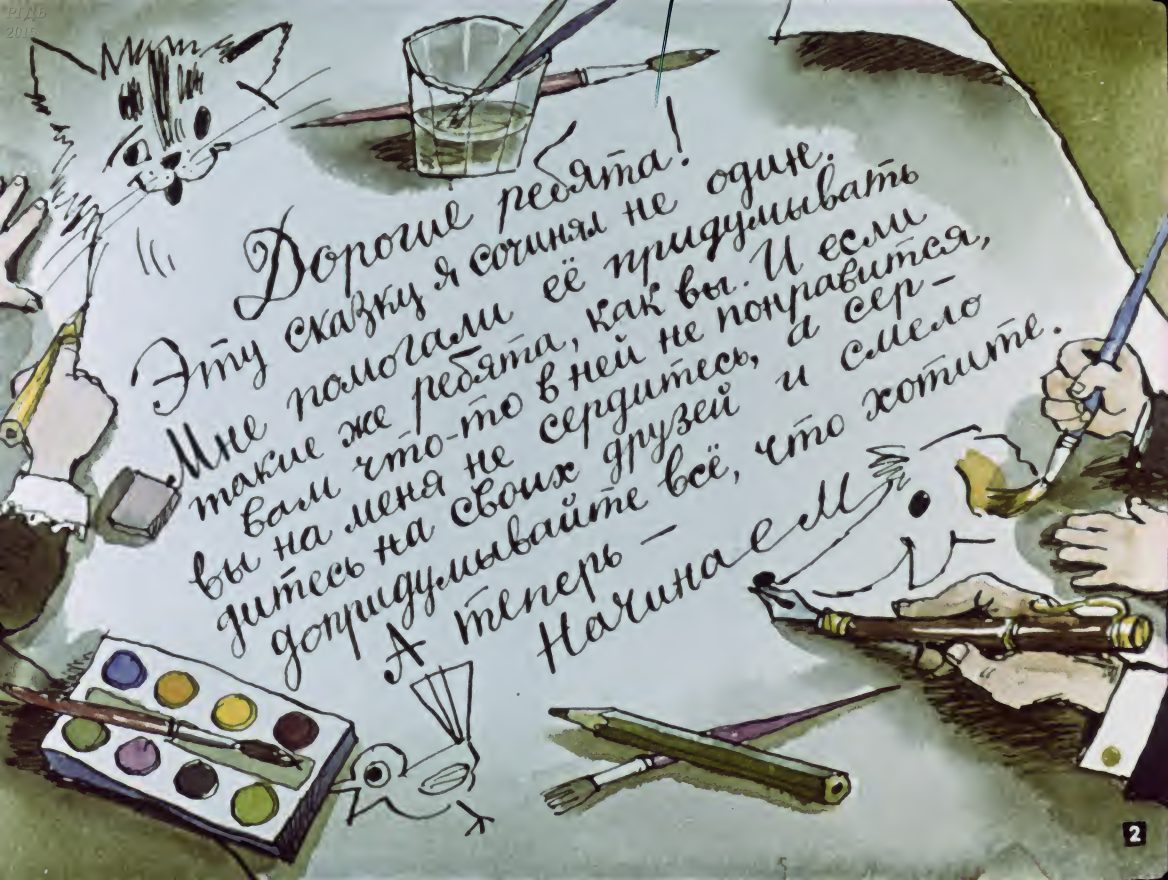 РГДБ
2015
Дорогие ребята!
Эту сказку я сочинял не один.
Мне помогали её придумывать
такие же ребята, как вы. И если
вам что-то в ней не понравится,
вы на меня не сердитесь, а сер-
дитесь на своих друзей и смело
допридумывайте всё, что хотите.
А теперь –
Начинаем
2